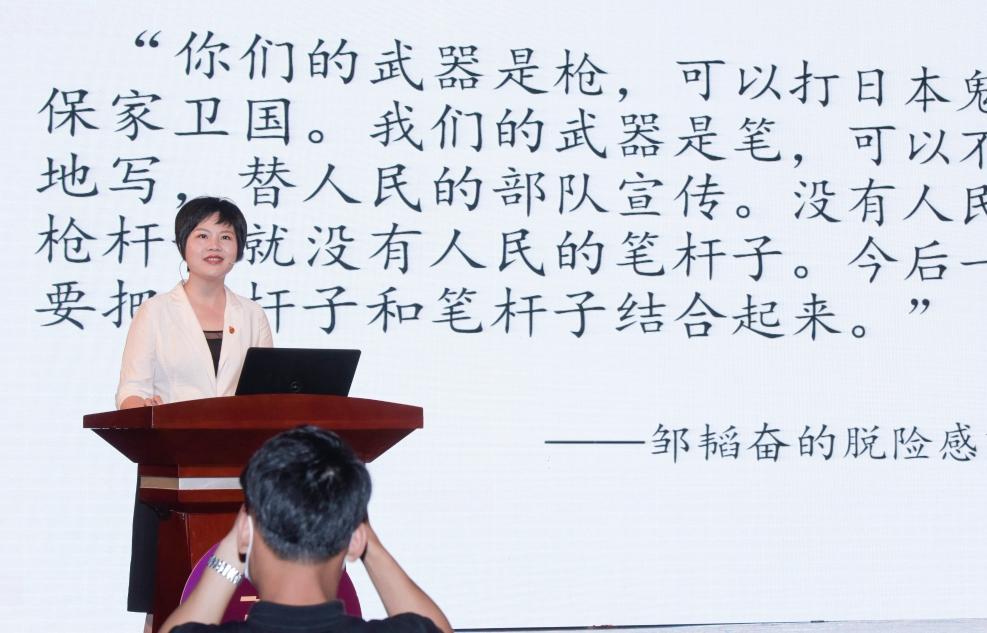 “你们的武器是枪，可以打日本鬼
保家卫国。我们的武器是笔，可以不
地写，替人民的部队宣传。没有人民
枪杆 就没有人民的笔杆子。今后一
要把 杆子和笔杆子结合起来。”
——邹韬奋的脱险感